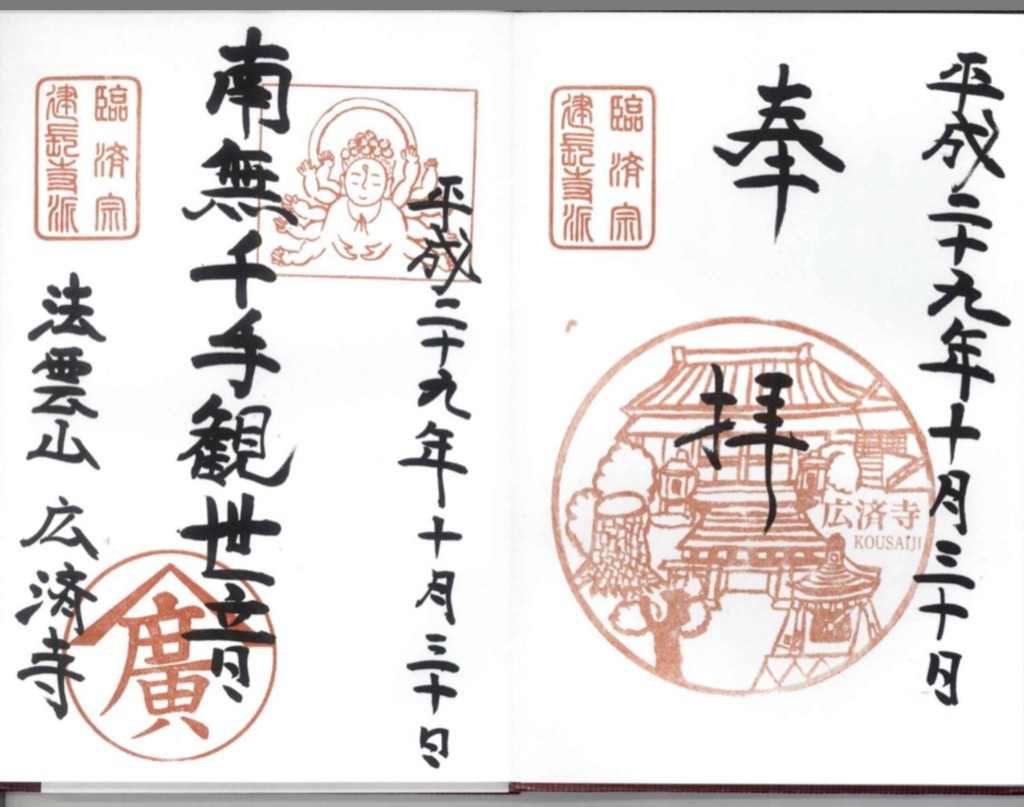 平成二十九年十月三十日
奉拝
臨済宗
建長寺派
広済寺
KOUSAIJI
平成二十九年十月三十日
南無千手観世音
臨済宗
建長寺派
法雲山 広済寺
廣